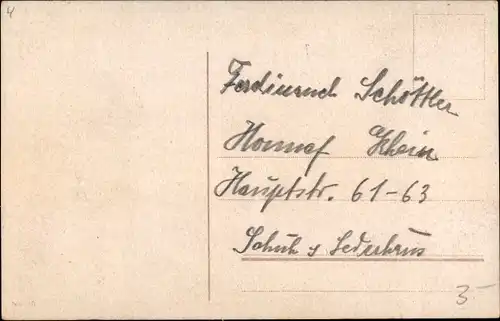 4
Ferdinand Schöttler
Honnef Rhein
Hauptstr. 61-63
Schuh & Lederhaus
3-